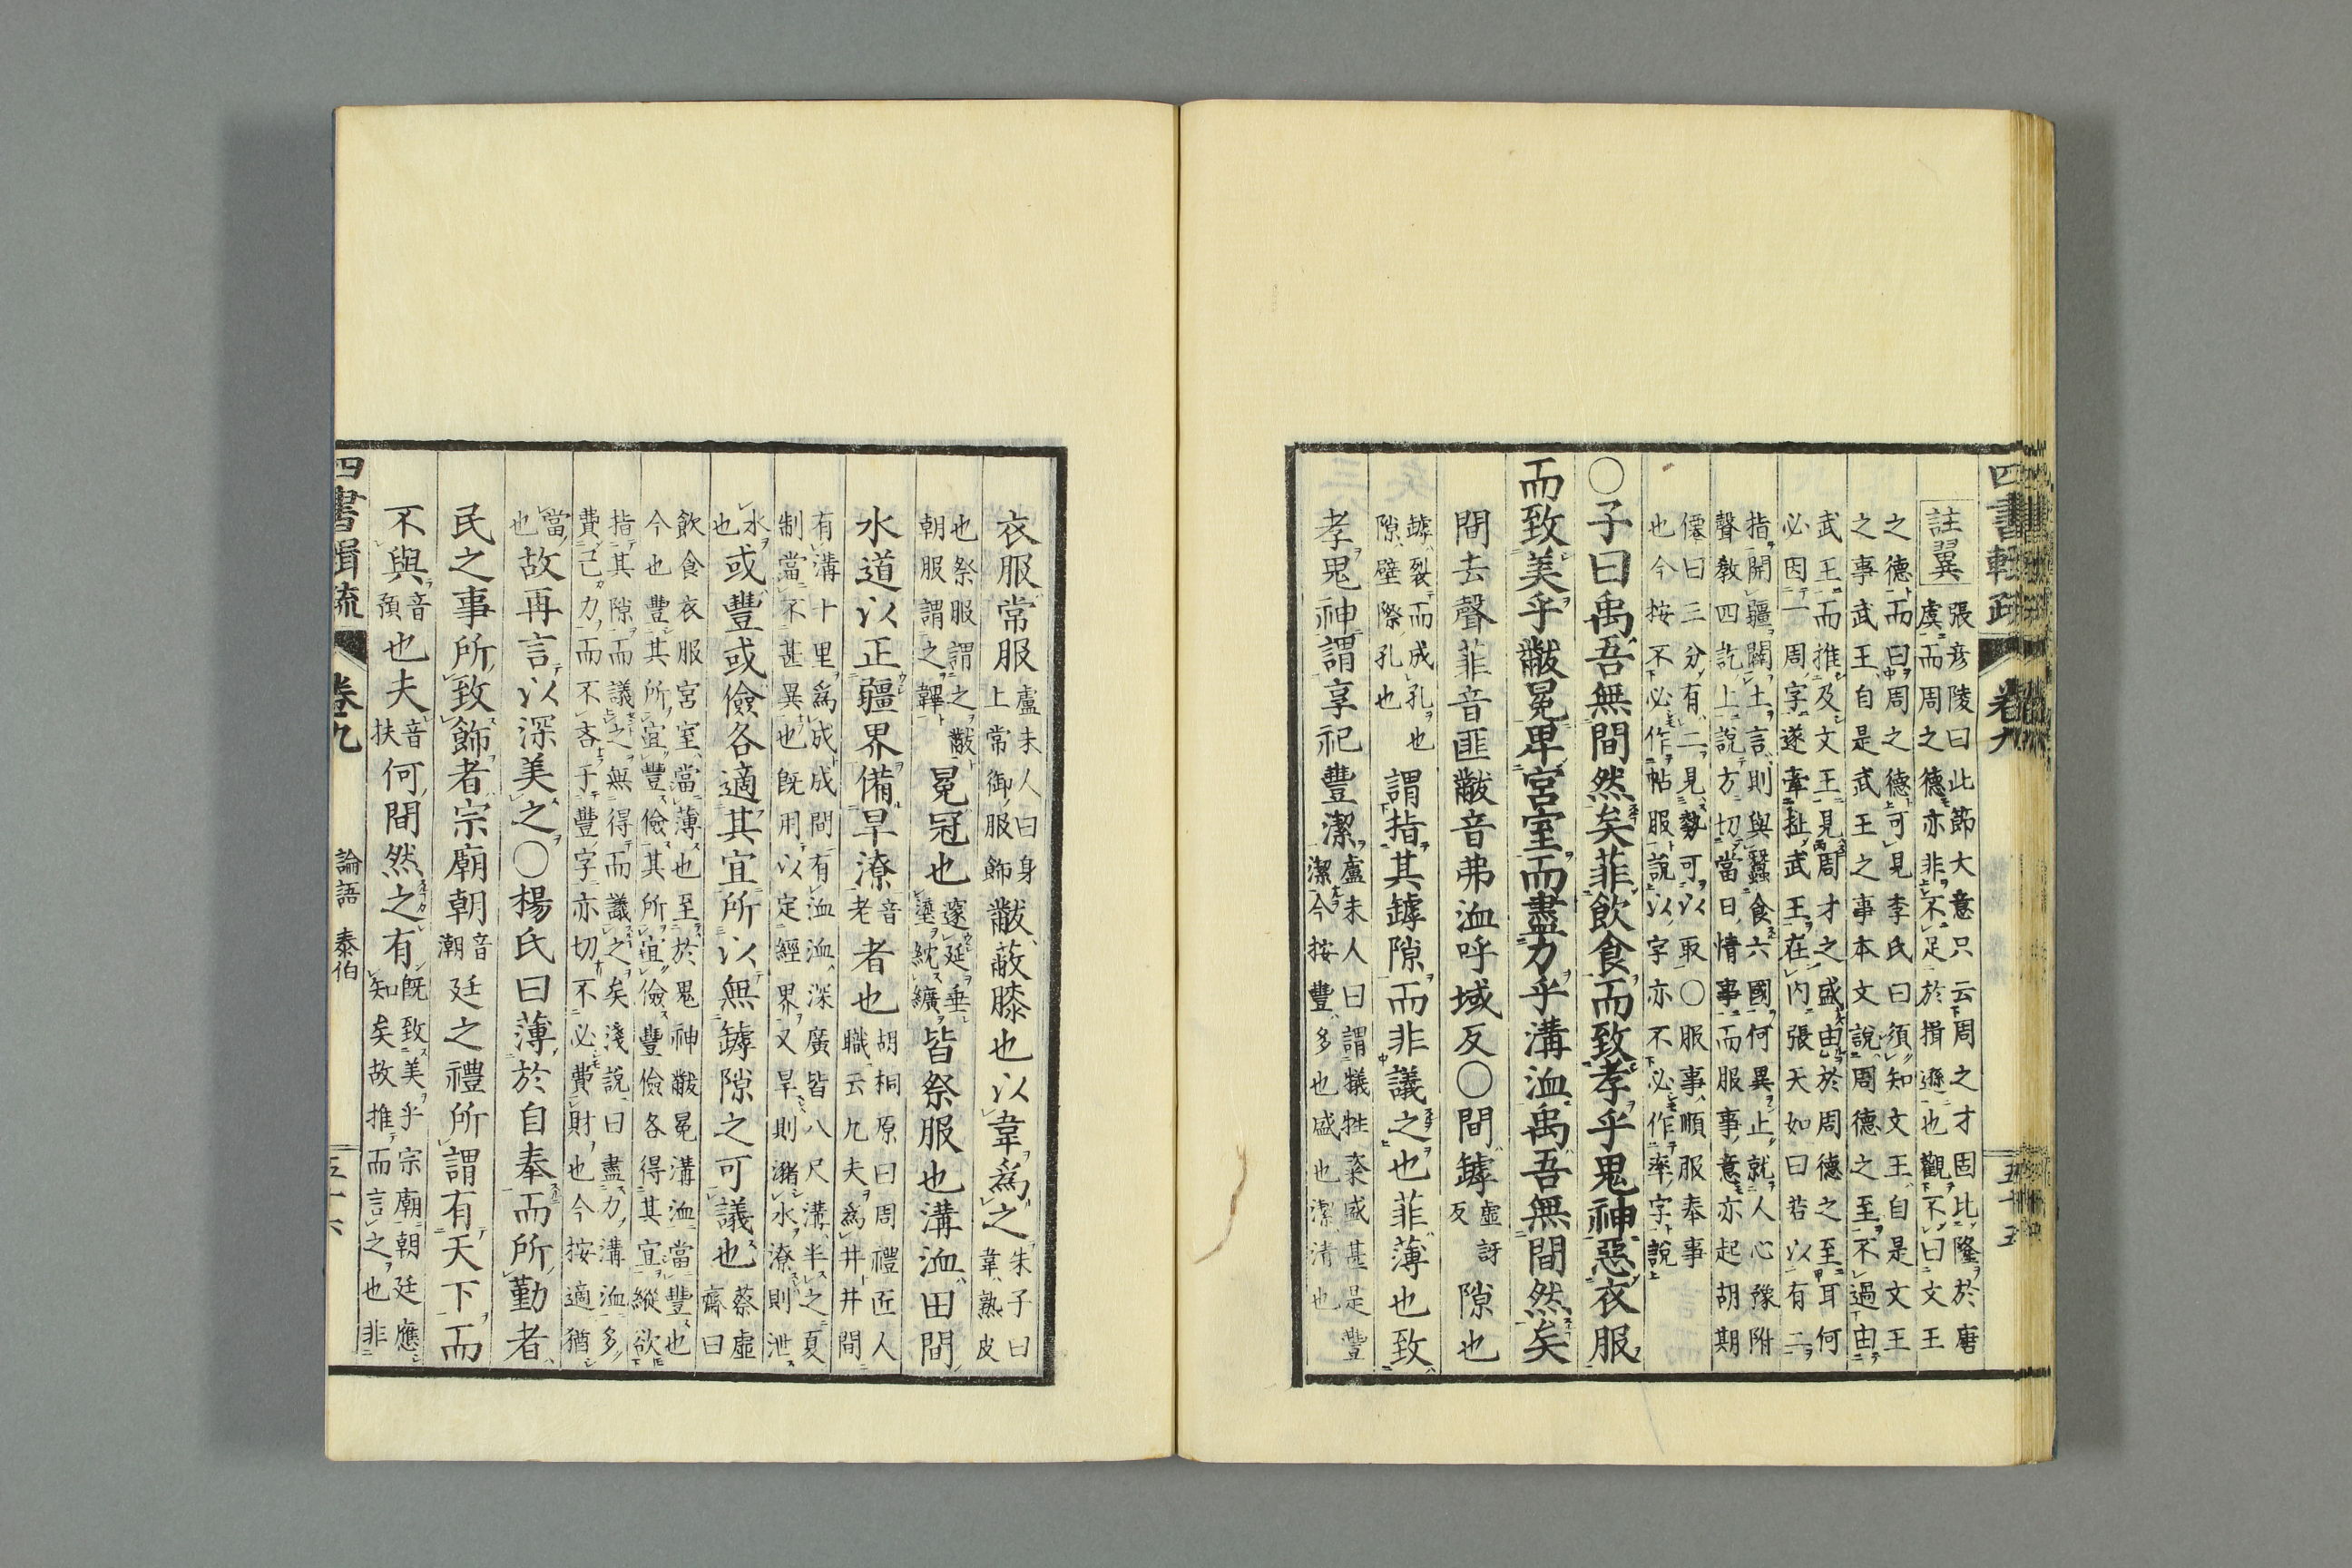 四書輯疏 卷九 五十五
註翼 張彦陵曰此節大意只云周之才固比隆於唐
虞而周之德亦非不足於揖遜也觀不曰文王
之德而曰周之德可見李氏曰須知文王自是文王
之事武王自是武王之事本文說周德之至不過由
武王而推及文王見周才之盛由於周德之至耳何
必因一周字遂牽扯武王在内張天如曰若以有二
指開疆闢土言則與蠶食六國何異止就人心豫附
聲教四訖上說方切當日情事而服事意亦起胡期
僊曰三分有二見勢可以取〇服事順服奉事
也今按不必作帖服說以字亦不必作率字說
〇子曰禹吾無間然矣菲飲食而致孝乎鬼神惡衣服
而致美乎黻冕卑宮室而盡力乎溝洫禹吾無間然矣
間去聲菲音匪黻音弗洫呼域反〇間罅虛訝反隙也
罅裂而成孔也
隙壁際孔也
謂指其罅隙而非議之也菲薄也致
孝鬼神謂享祀豐潔盧未人曰謂犠牲粢盛甚是豐
潔今按豐多也盛也潔清也
衣服常服盧未人曰身
上常御服飾
黻蔽膝也以韋爲之朱子曰
韋熟皮
也祭服謂之黻
朝服謂之韠
冕冠也邃延垂
瑬紞纊
皆祭服也溝洫田間
水道以正疆界備旱潦音
老
者也胡桐原曰周禮匠人
職云九夫爲井井間
有溝十里爲成成間有洫洫深廣皆八尺溝半之夏
制當不甚異也旣用以定經界又旱則瀦水潦則泄
水
也
或豐或儉各適其宜所以無罅隙之可議也蔡虛
齋曰
飲食衣服宮室當薄也至於鬼神黻冕溝洫當豐也
今也豐其所宜豐儉其所宜儉豐儉各得其宜縱欲
指其隙而議之無得而議之矣淺說曰盡力溝洫多
費己力而不吝于豐字亦切不必費財也今按適猶
當
也
故再言以深美之〇楊氏曰薄於自奉而所勤者
民之事所致飾者宗廟朝音
潮
廷之禮所謂有天下而
不與音
預
也夫音
扶
何間然之有旣致美乎宗廟朝廷應
知矣故推而言之也非
四書輯疏 卷九 論語 泰伯 五十六